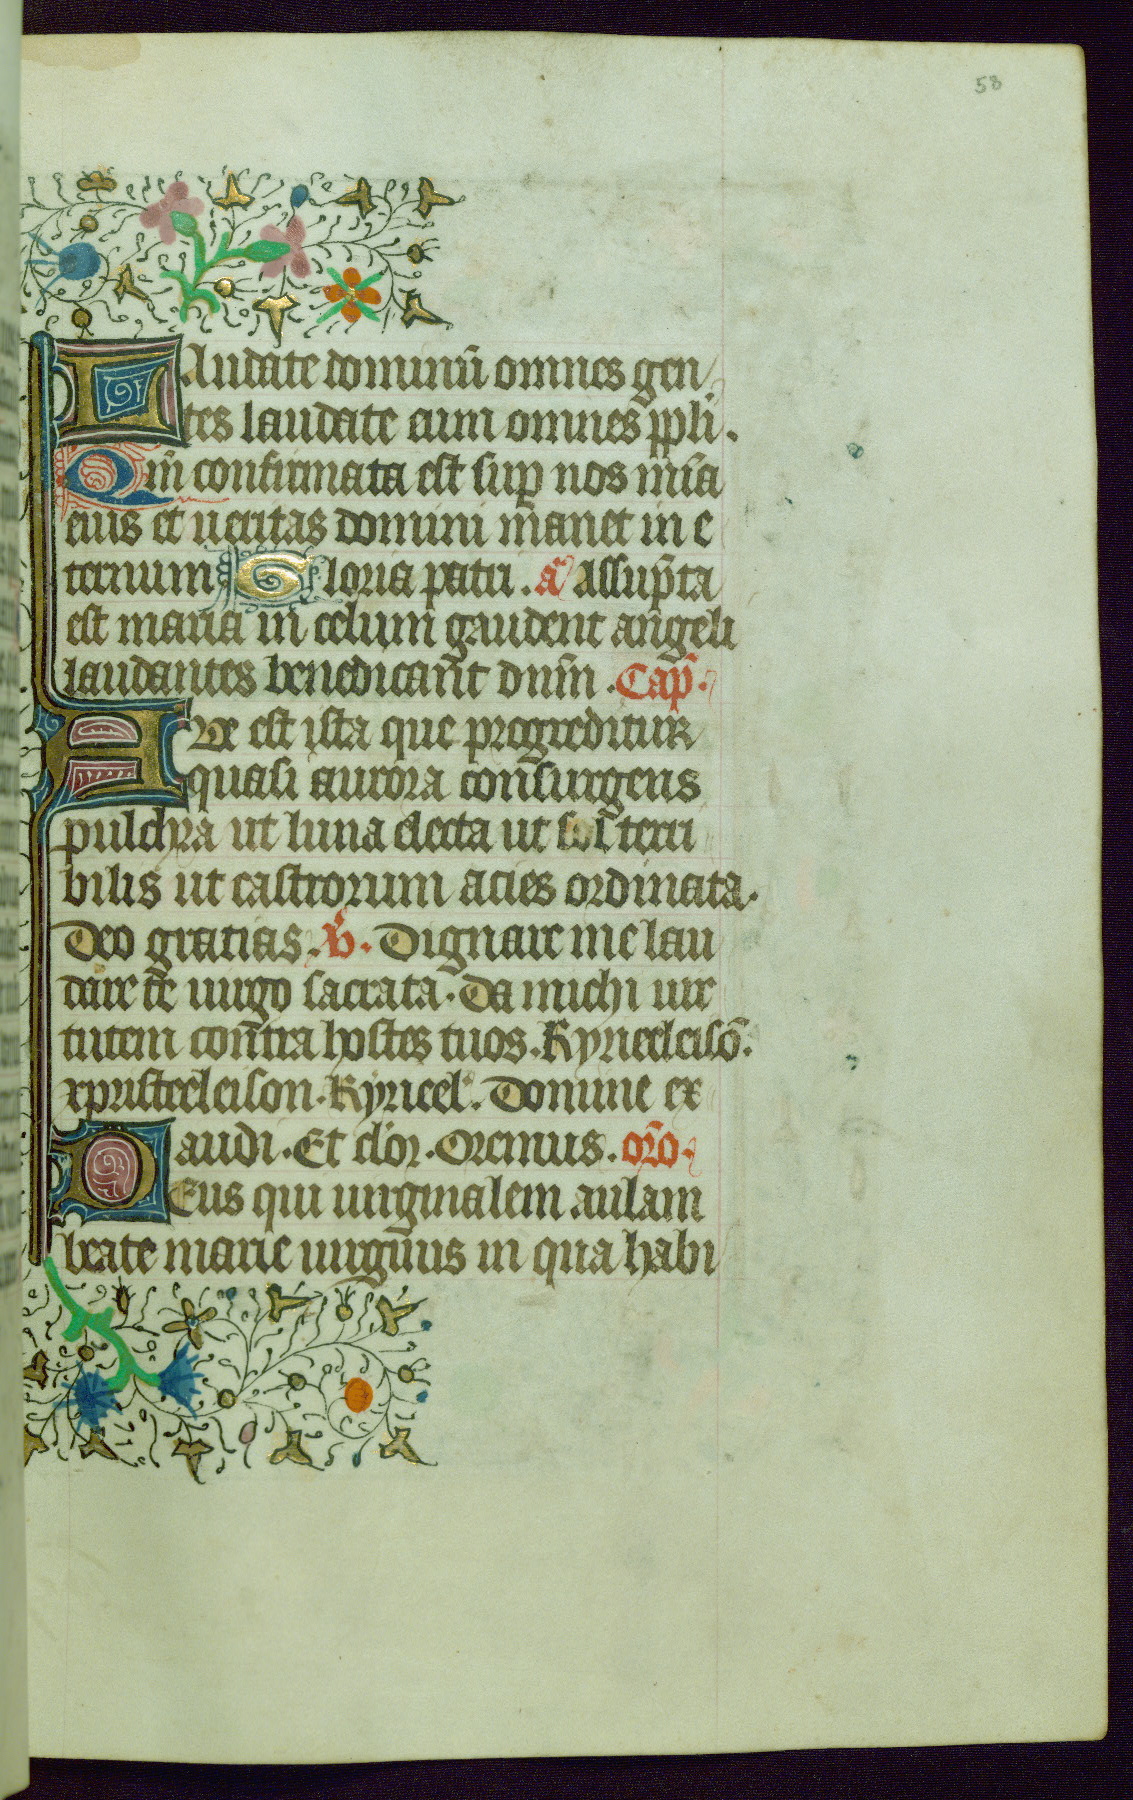 58
Laudate dominū omnes gen
tes laudate eum omnes ppli.
Qm̄ confirmata est sup nos mīa
eius et ueritas domini manet in e
ternum Gloria patri. a Assūpta
est maria in celum gaudent angeli
laudantes benedicant dnm̄. Cap̄.
Ae est ista que progreditur
quasi aurora consurgens
pulchra ut luna electa ut sol terri
bilis ut castrorum acies ordinata.
Deo gratias. V. Dignare me lau
dare te uirgo sacrata. Da michi uir
tutem contra hostes tuos. Kyrieeleisō.
xpristeeleison. Kyrieel'. Domine ex
audi. Et clor. Oremus. oro.
Deus qui uirginalem aulam
beate marie uirginis in qua habi